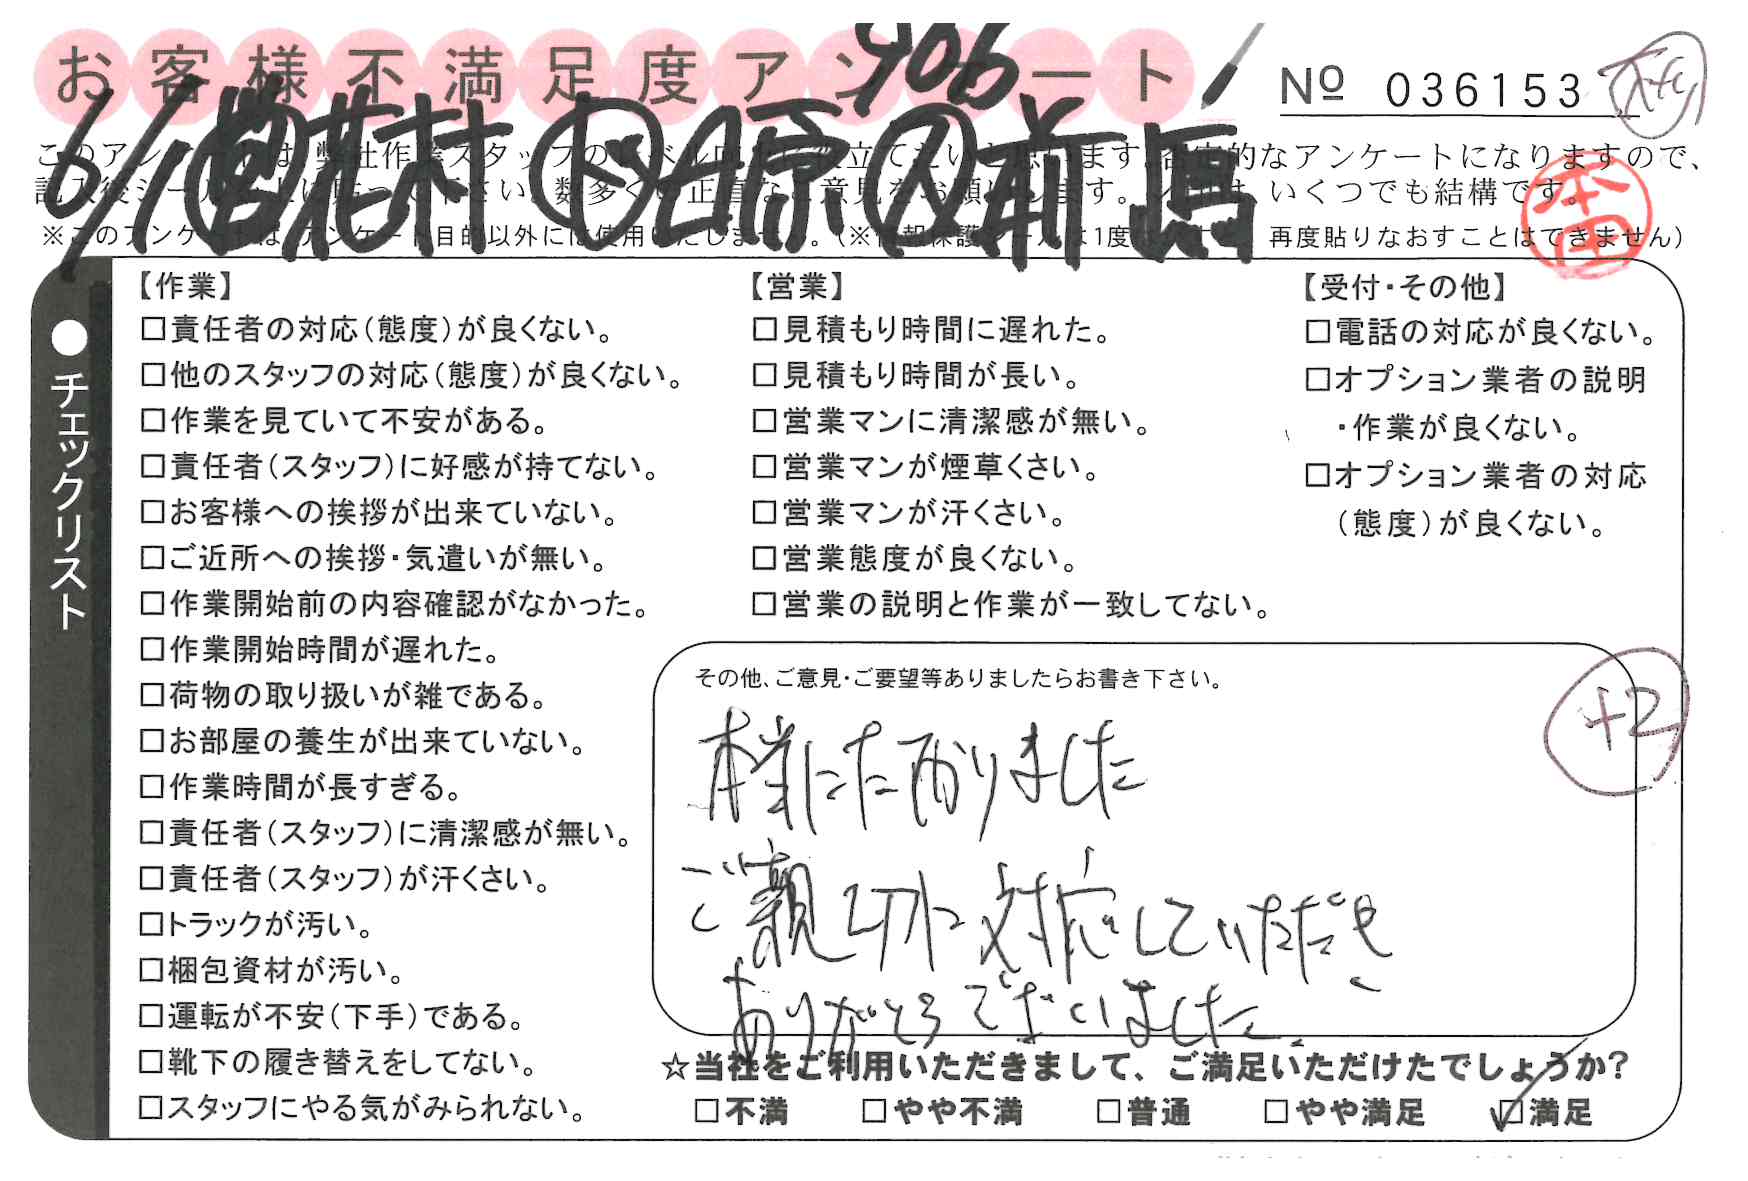 お客様不満足度アンケート
906
№ 036153
6/1 営 花村 ド 萩原 ス 前馬
このアンケートは、弊社作業スタッフのレベル向上に役立てたいと思います。否定的なアンケートになりますので、
記入後シールを上に貼って下さい。数多くの正直なご意見をお願いします。シールは、いくつでも結構です。
※このアンケートは、アンケート目的以外には使用いたしません。(※情報保護シールは1度貼ると、再度貼りなおすことはできません)
本田
●チェックリスト
【作業】
□責任者の対応(態度)が良くない。
□他のスタッフの対応(態度)が良くない。
□作業を見ていて不安がある。
□責任者(スタッフ)に好感が持てない。
□お客様への挨拶が出来ていない。
□ご近所への挨拶・気遣いが無い。
□作業開始前の内容確認がなかった。
□作業開始時間が遅れた。
□荷物の取り扱いが雑である。
□お部屋の養生が出来ていない。
□作業時間が長すぎる。
□責任者(スタッフ)に清潔感が無い。
□責任者(スタッフ)が汗くさい。
□トラックが汚い。
□梱包資材が汚い。
□運転が不安(下手)である。
□靴下の履き替えをしてない。
□スタッフにやる気がみられない。
【営業】
□見積もり時間に遅れた。
□見積もり時間が長い。
□営業マンに清潔感が無い。
□営業マンが煙草くさい。
□営業マンが汗くさい。
□営業態度が良くない。
□営業の説明と作業が一致してない。
【受付・その他】
□電話の対応が良くない。
□オプション業者の説明
・作業が良くない。
□オプション業者の対応
(態度)が良くない。
その他、ご意見・ご要望等ありましたらお書き下さい。
本当にたすかりました
ご親切に対応していただき
ありがとうございました
+2
☆当社をご利用いただきまして、ご満足いただけたでしょうか?
□不満 □やや不満 □普通 □やや満足 □満足